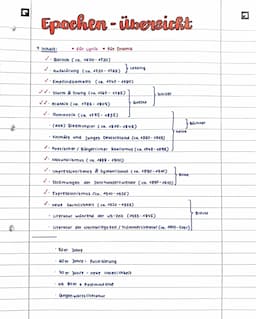 Epochen-übersicht
Inhalt: • für Lyrik • für Dramatik
✓ Barock (ca. 1600 - 1720)
✓ Aufklärung (ca. 1720 - 1785) Lessing
✓ Empfindsamkeit (ca. 1740 - 1780)
✓✓ Sturm & Drang (ca. 1765 - 1785) Schiller
✓✓ Klassik (ca. 1786 - 1805) Goethe
✓ Romantik (ca. 1795 - 1835) Heine
Biedermeier (ca. 1815 - 1848) Büchner
Vormärz und Junges Deutschland
Poetischer / Bürgerlicher Realismus (ca. 1848 - 1890)
✓ Naturalismus (ca. 1880 - 1900)
✓ Impressionismus & Symbolismus (ca. 1890 - 1920) Rilke
✓ Strömungen der Jahrhundertwende
✓ Expressionismus
✓ neue Sachlichkeit (ca. 1920 - 1933) Brecht
Literatur während der NS-Zeit (1933 - 1945)
Literatur der Nachkriegszeit / Trümmerliteratur
50er Jahre
60er Jahre: Politisierung
70er Jahre - neue Innerlichkeit
Postmoderne
Gegenwartsliteratur